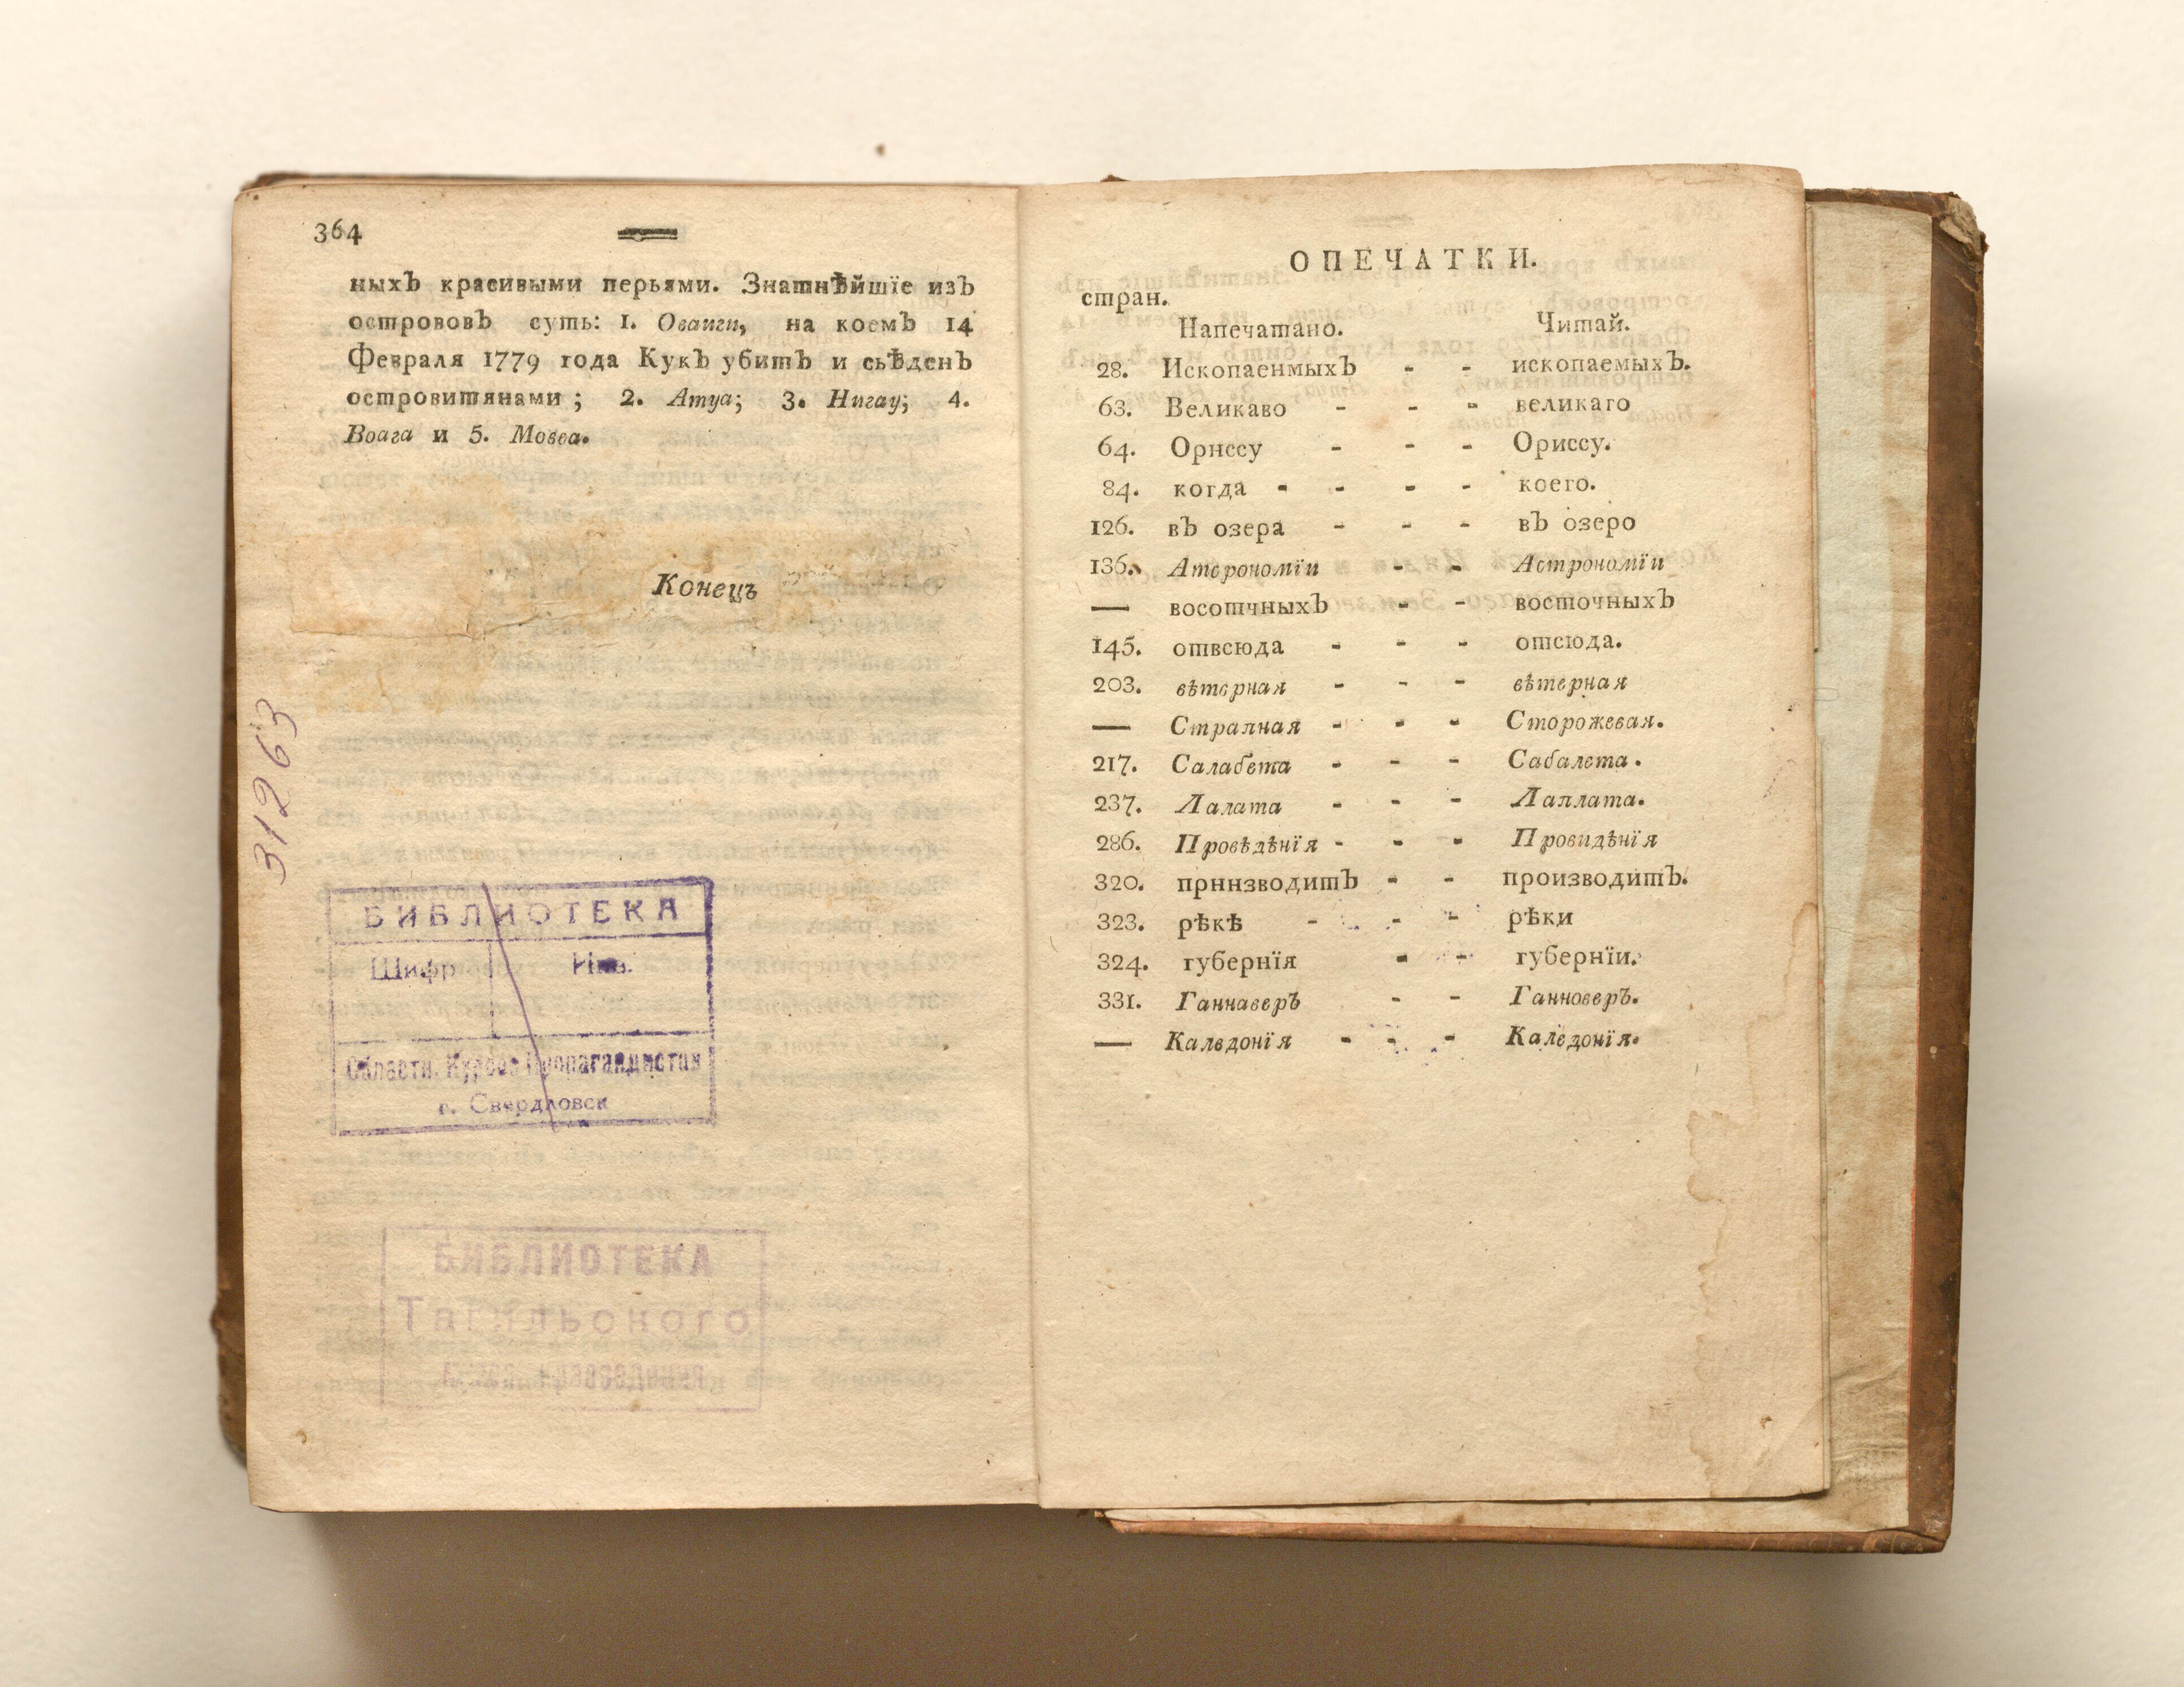 364
ныхЪ красивыми перьями. Знатнѣйшїе изЪ
острововЪ суть: 1. Оваиги, на коемЪ 14
Февраля 1779 года КукЪ убитЪ и сьѣденЪ
островитянами; 2. Атуа; 3. Нигау; 4.
Воага и 5. Мовеа.
Конецъ
31263
БИБЛИОТЕКА
Шифр Инв.
Областн. Курсов Пропагандистов
г. Свердловск
БИБЛИОТЕКА
Тагильского
краеведения
ОПЕЧАТКИ.
стран.
Напечатано. Читай.
28. ИскопаенмыхЪ - - ископаемыхЪ.
63. Великаво - - - великаго
64. Орнссу - - - Ориссу.
84. когда - - - - коего.
126. вЪ озера - - - вЪ озеро
136. Атсрономїи - - Астрономїи
— восотчныхЪ - - восточныхЪ
145. отвсюда - - - отсюда.
203. вѣтарная - - - вѣтерная
— Стралная - - - Сторожевая.
217. Салабета - - - Сабалета.
237. Лалата - - - Лаплата.
286. Провѣдѣнїя - - - Провидѣнїя
320. прннзводитЪ - - производитЪ.
323. рѣкѣ - - - рѣки
324. губернїя - - губернїи.
331. ГаннаверЪ - - ГанноверЪ.
— Калвдонїя - - - Каледонїя.